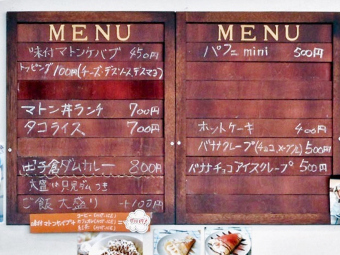 MENU
味付マトンケバブ 450円
トッピング100円(チーズ・デスソース・デスマヨ)
マトン丼ランチ 700円
タコライス 700円
ばば倉ダムカレー 800円
大盛は只見ダムつき
ご飯大盛り +100円
MENU
パフェmini 500円
ホットケーキ 400円
バナナクレープ(チョコ、メープル) 500円
バナナチョコアイスクレープ 500円